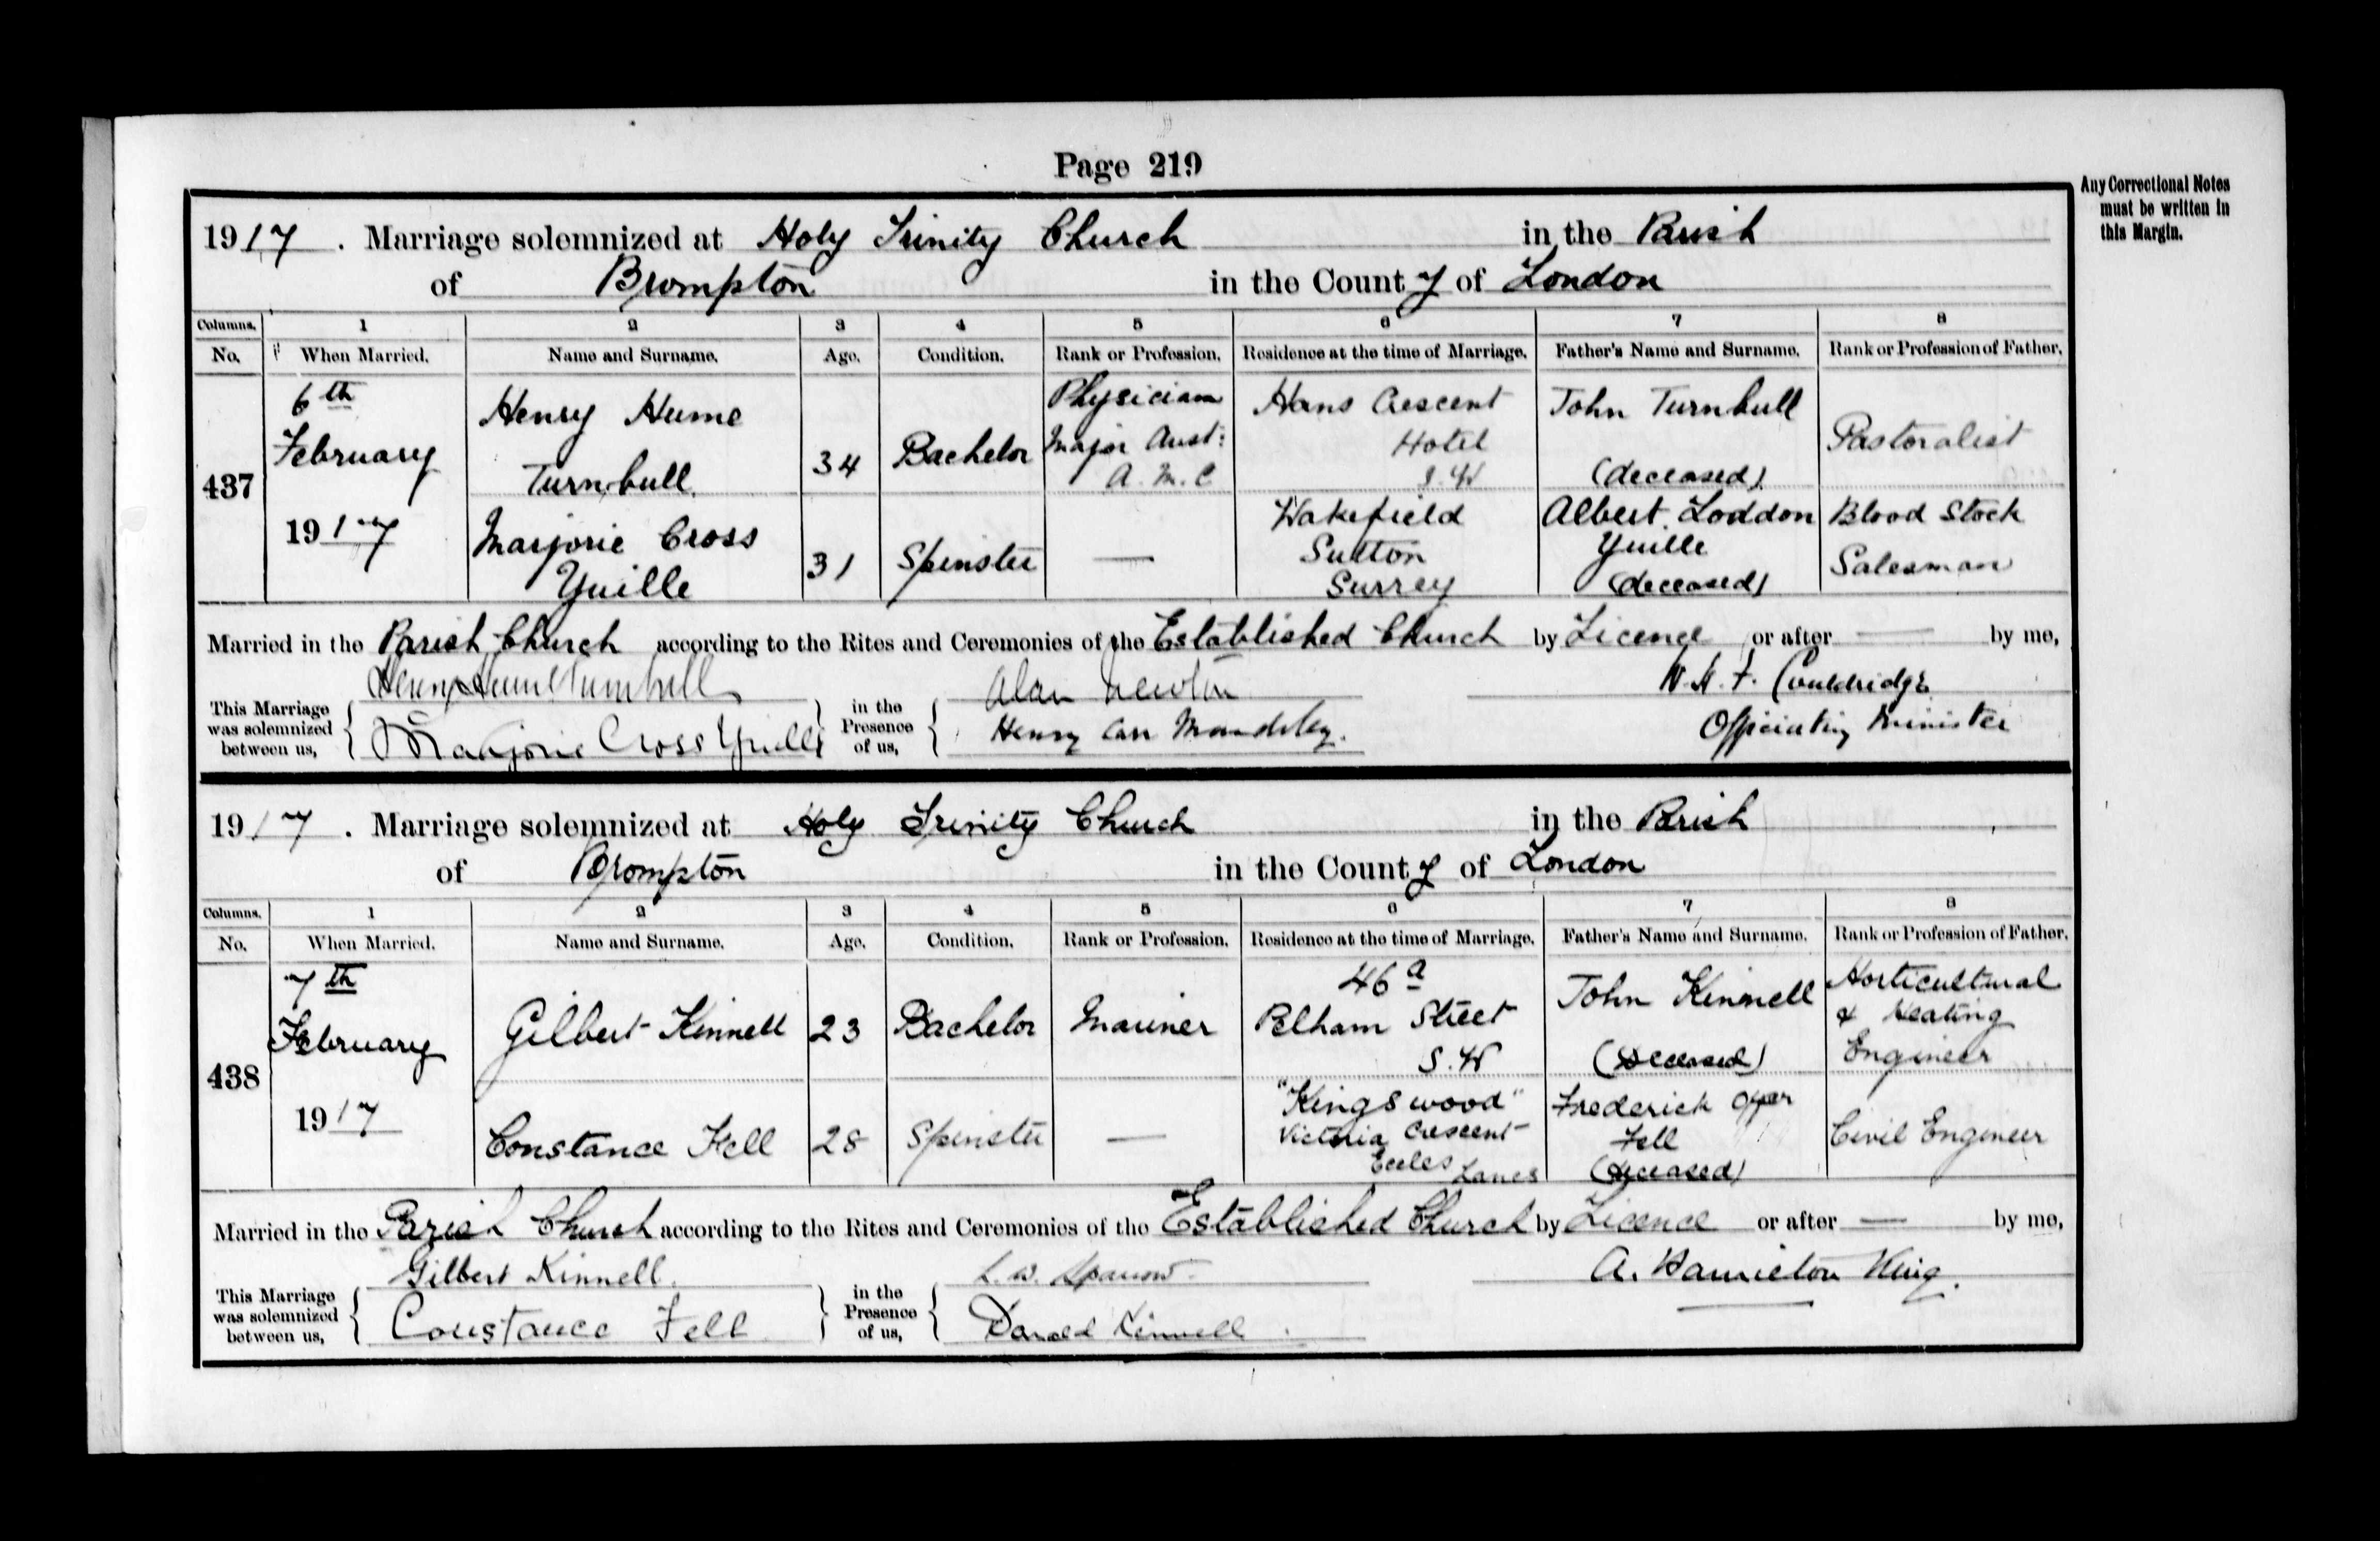 Page 219
Any Correctional Notes
must be written in
this Margin.
1917. Marriage solemnized at Holy Trinity Church in the Parish
of Brompton in the County of London
Columns. 1 2 3 4 5 6 7 8
No. When Married. Name and Surname. Age. Condition. Rank or Profession. Residence at the time of Marriage. Father's Name and Surname. Rank or Profession of Father.
437
6th
February
1917
Henry Hume
Turnbull
34
Bachelor
Physician
Major Aust:
A.M.C
Hans Crescent
Hotel
S.W
John Turnbull
(deceased)
Pastoralist
Marjorie Cross
Yuille
31
Spinster
—
Wakefield
Sutton
Surrey
Albert Loddon
Yuille
(deceased)
Blood Stock
Salesman
Married in the Parish Church according to the Rites and Ceremonies of the Established Church by Licence or after — by me,
This Marriage
was solemnized
between us,
Henry Hume Turnbull
Marjorie Cross Yuille
in the
Presence
of us,
Alan Newton
Henry Carr Maudsley.
Officiating Minister
1917. Marriage solemnized at Holy Trinity Church in the Parish
of Brompton in the County of London
Columns. 1 2 3 4 5 6 7 8
No. When Married. Name and Surname. Age. Condition. Rank or Profession. Residence at the time of Marriage. Father's Name and Surname. Rank or Profession of Father.
438
7th
February
1917
Gilbert Kinnell
23
Bachelor
Mariner
46a
Pelham Street
S.W
John Kinnell
(Deceased)
Horticultural
& Heating
Engineer
Constance Fell
28
Spinster
—
"Kingswood"
Victoria Crescent
Eccles Lancs
Frederick
Fell
(deceased)
Civil Engineer
Married in the Parish Church according to the Rites and Ceremonies of the Established Church by Licence or after — by me,
This Marriage
was solemnized
between us,
Gilbert Kinnell.
Constance Fell
in the
Presence
of us,
Donald Kinnell
A. Hamilton King.